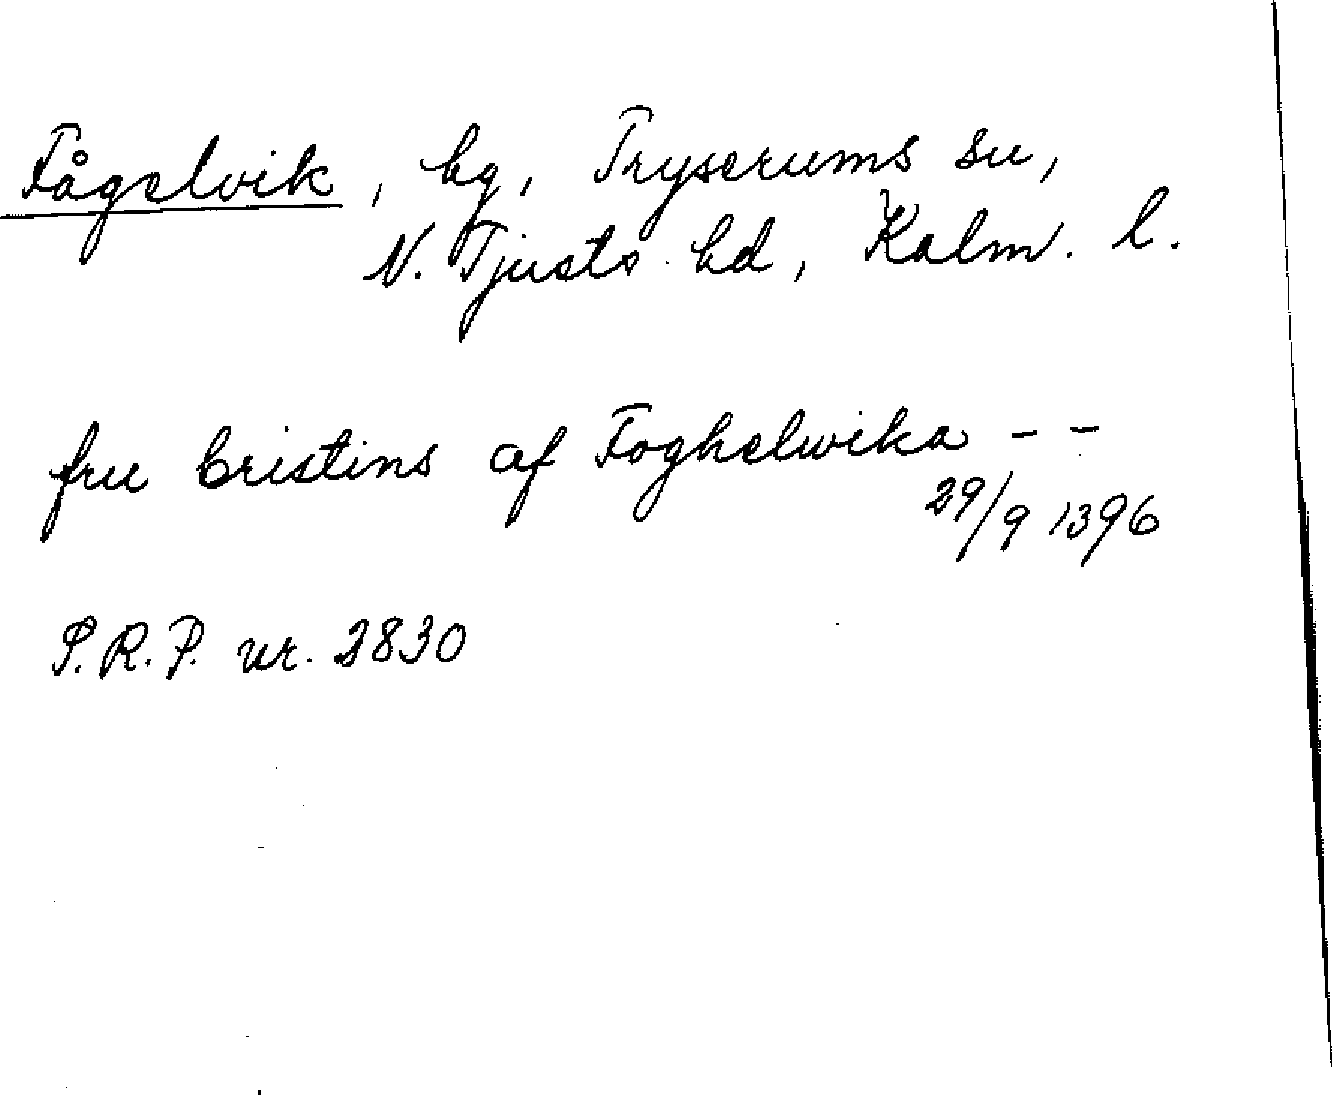 Fågelvik, hg, Tryserums sn,
N. Tjusts hd, Kalm. l.
fru Cristins af Foghelwika - -
29/9 1396
S.R.P. nr. 2830